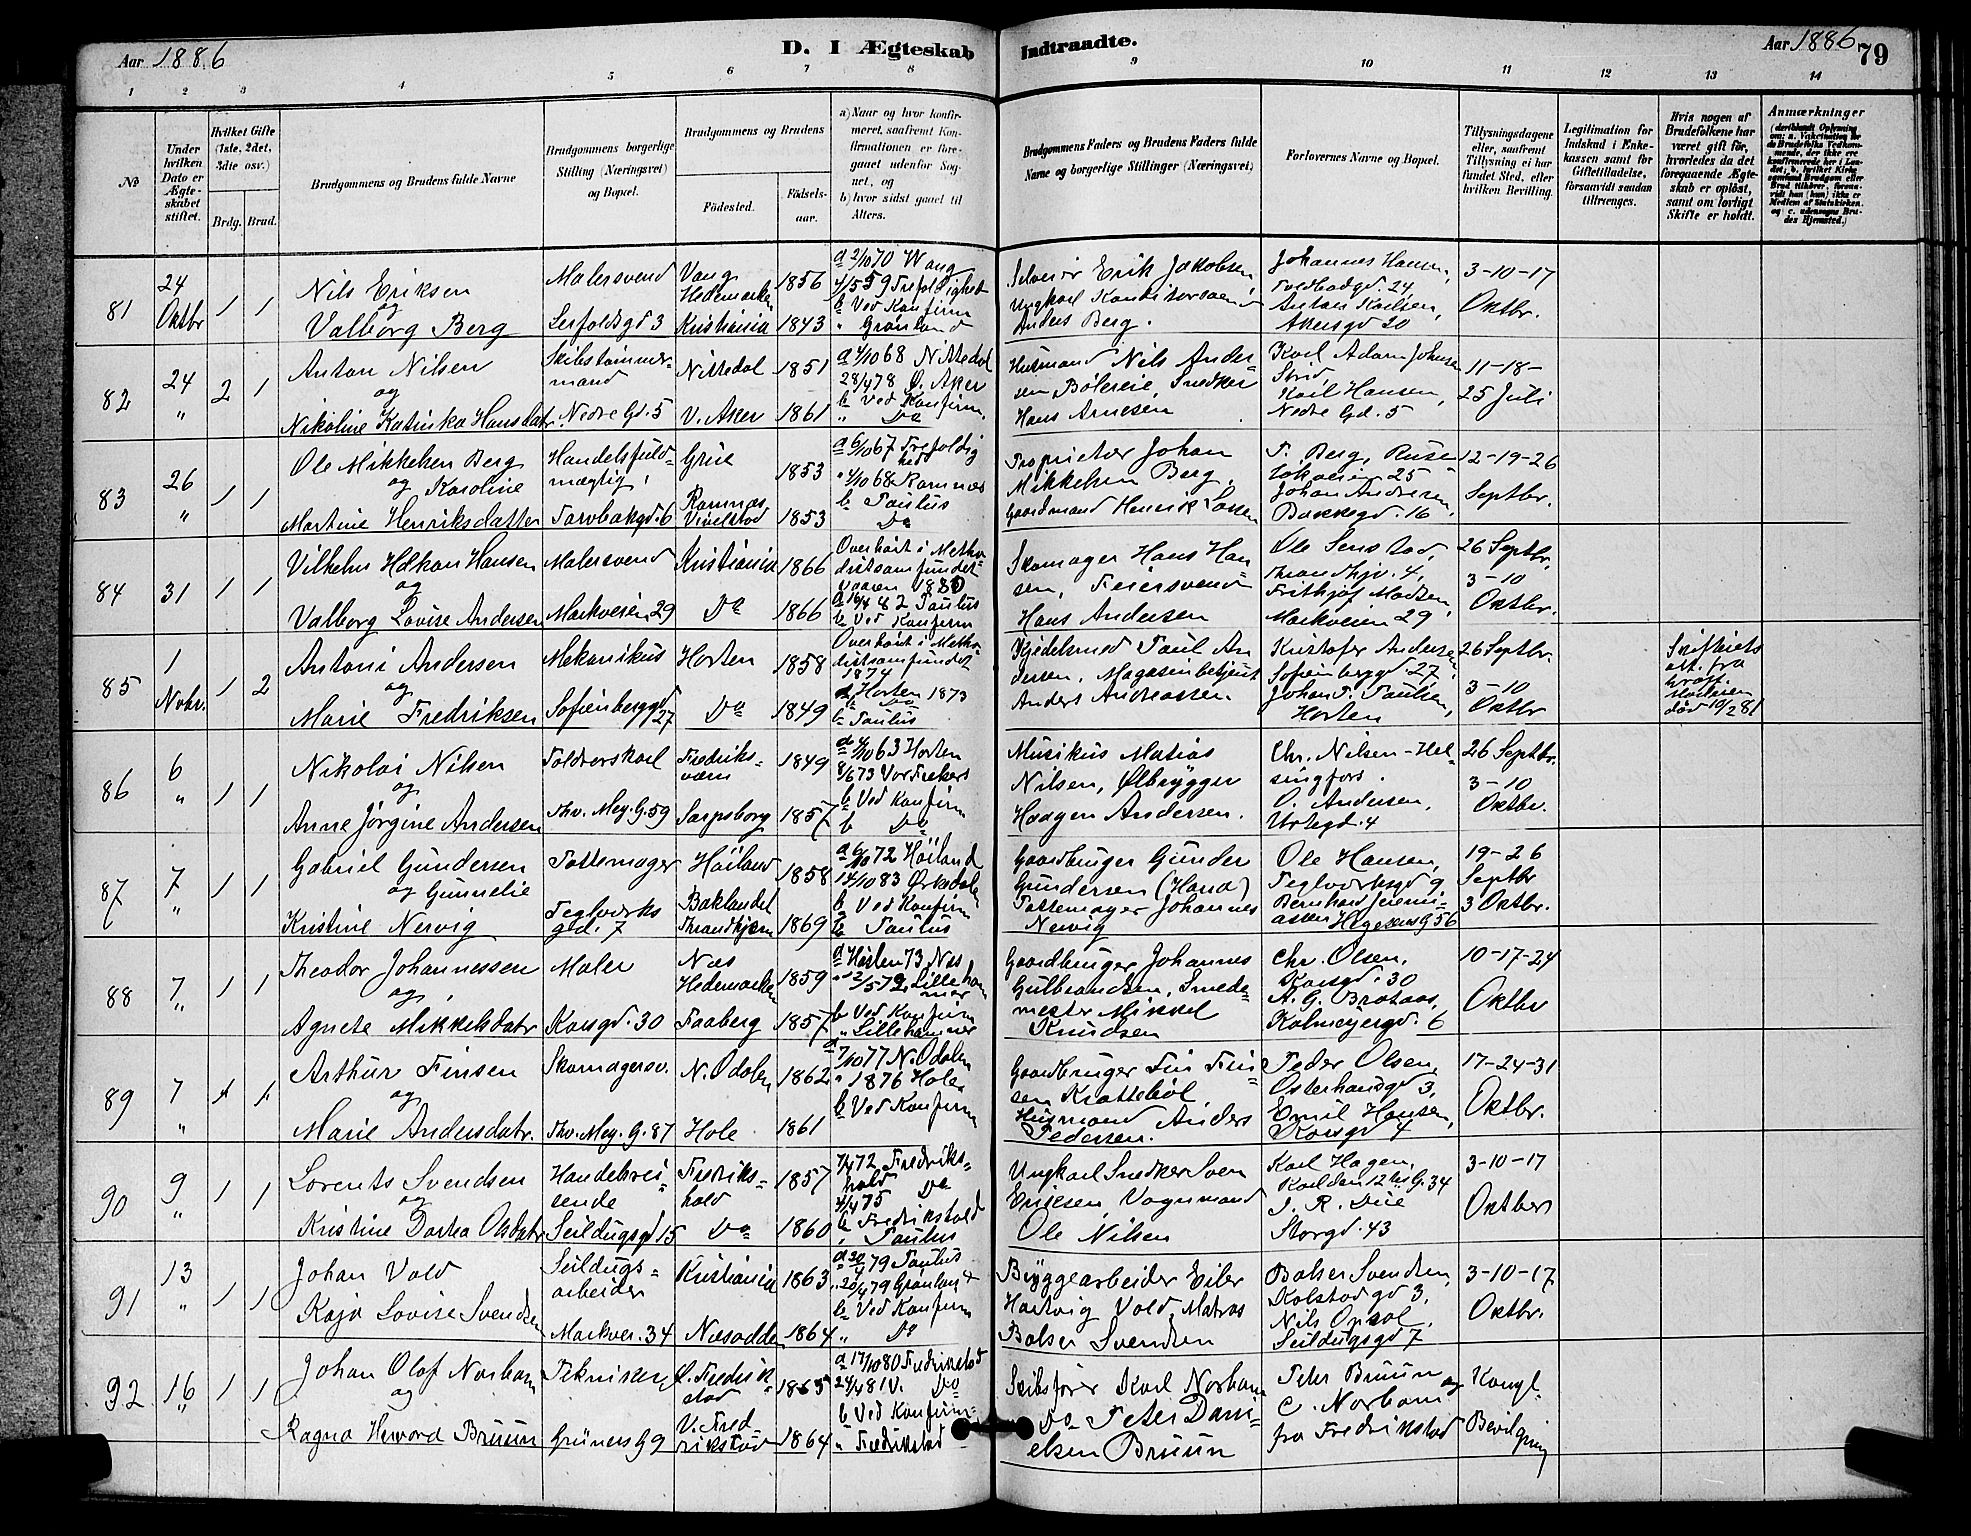 Aar 1886
D. I Ægteskab Indtraadte.
Aar 1886
79
1 2 3 4 5 6 7 8 9 10 11 12 13 14
No
Under hvilken Dato er Ægteskabet stiftet.
Hvilket Gifte (1ste, 2det, 3die osv.)
Brdg. Brud.
Brudgommens og Brudens fulde Navne
Brudgommens borgerlige Stilling (Næringsvei) og Bopæl.
Brudgommens og Brudens
Fødested.
Fødselsaar.
a) Naar og hvor konfirmeret, saafremt Konfirmationen er foregaaet udenfor Sognet, og
b) hvor sidst gaaet til Alters.
Brudgommens Faders og Brudens Faders fulde Navne og borgerlige Stillinger (Næringsvei)
Forlovernes Navne og Bopæl.
Tillysningsdagene eller, saafremt Tillysning ei har fundet Sted, efter hvilken Bevilling.
Legitimation for Indskud i Enkekassen samt for Giftetilladelse, forsaavidt saadan tiltrænges.
Hvis nogen af Brudefolkene har været gift før, hvorledes da det foregaaende Ægteskab er opløst, samt om lovligt Skifte er holdt.
Anmærkninger
81 24 Oktbr 1 1
Nils Eriksen
og
Valborg Berg
Malersvend
Vang Hedemarken 1856
Kristiania 1843
a 2/10 70 Wang
4/5 59 Trefoldighed
b Ved Konfirm
" Grønland
Erik Jakobsen
Ungkarl
Anders Berg.
Johannes Hansen,
Toldbodgd. 24
Akersgd 20
3-10-17
Oktbr.
82 24 " 2 1
Anton Nilsen
og
Nikoline Katinka Hansdatr.
Skibstømmermand
Nedre Gd. 5
Nittedal 1851
V. Aker 1861
a 4/10 68 Nittedal
28/4 78 Ø. Aker
b Ved Konfirm.
" Do
Husmand Nils Andersen Bölereie, Snedker
Hans Arnesen
Karl Adam Johnsen
Karl Hansen,
Nedre Gd. 5
11-18-
25 Juli
83 26 " 1 1
Ole Mikkelsen Berg
og Karoline
Martine Henriksdatter
Handelsfuldmægtig,
Torvbakgd. 6
Grue 1853
Ramnæs
1853
a 6/10 67 Trefoldighed
" 4/10 68 Ramnæs
b Paulus
Do
Proprietær Johan
Mikkelsen Berg,
Gaardmand Henrik Larsen
T. Berg,
25
Johan Andresen,
Bakkegd. 16
12-19-26
Septbr.
84 31 1 1
Vilhelm Håkon Hansen
og
Valborg Lovise Andersen
Malersvend
Markveien 29
Kristiania 1866
Do 1866
Overhørt i Methodistsamfundet
vaaren 1880
82 Paulus
b Ved Konfirm
Skomager Hans Hansen, Feiersvend
Hans Andersen
Ole Senstad,
Throndhjv. 4,
Frithjof Madsen,
Markveien 29
26 Septbr.
3-10
Oktbr.
85 1 Novbr. 1 2
Antoni Andersen
og
Marie Fredriksen
Mekanikus
Sofienberggd 27
Horten 1858
Do 1849
Overhørt i Methodistsamfundet
1874
a Horten 1873
b Do
b Paulus
Gjødelsmed Paul Andersen, Magasinbetjent
Anders Andreassen
Kristofer Andersen,
Sofienberggd. 27,
Johan P. Paulsen,
Horten
26 Septbr.
3-10
Oktbr
Skifteretsatt. fra
død 10/2 81
86 6 " 1 1
Nikolai Nilsen
og
Anne Jørgine Andersen
Toldrorskarl
Thv. Mey. G. 59
Fredriksværn 1849
Sarpsborg 1857
a 4/10 63 Horten
8/6 73 Vor Frelsers
b Ved Konfirm
b Do
Musikus Matias
Nilsen, Ølbrygger
Haagen Andersen.
Chr. Nilsen-Helsingfors.
O. Andersen,
Urtegd. 4
26 Septbr.
3-10
Oktbr.
87 7 " 1 1
Gabriel Gundersen
og Gunnelie
Kristine Nervig
Pottemager
Teglverksgd. 7
Høiland 1858
Baklandet
Throndhjem 1869
a 6/10 72 Høiland
14/10 83 Ørkedalen
b Ved Konfirm
b Paulus
Gaardbruger Gunder
Gundersen (Hana)
Pottemager Johannes
Nervig
Ole Hansen,
Teglverksgd 9,
Bernhard Jeremiassen Hegermannsg 56
19-26
Septbr
3 Oktbr.
88 7 " 1 1
Theodor Johannessen
og
Agnete Mikkelsdatr
Maler
Korsgd. 30
Næs
Hedemarken 1859
Faaberg 1857
a Høsten 73 Næs
Lillehammer
b Ved Konfirm
" Lillehammer
Gaardbruger Johannes
Gulbrandsen, Smedemester Mikkel
Knudsen
Chr. Olsen,
Korsgd. 30
A. G. Brataas,
Kolmeyergd. 6
10-17-24
Oktbr
89 7 " 1 1
Arthur Finsen
og
Marie Andersdatr.
Skomagersv.
Thv. Mey. G. 87
N. Odalen 1862
Hole 1861
a 7/10 77 N. Odalen
" 1876 Hole
b Ved Konfirm
Gaardbruger Fin Finsen Krattebøl
Husmand Anders
Pedersen.
Peder Olsen,
Østerhausgd 3,
Emil Hansen,
Korsgd 4
17-24-31
Oktbr.
90 9 " 1 1
Lorents Svendsen
og
Kristine Dortea Olsdatr
Handelsreisende
Seildugsgd 15
Fredrikshald 1857
Do 1860
72 Fredrikshald
75 Do
b Fredrikshald
, Paulus
Ungkarl Snedker Sven
Eriksen, Vognmand
Ole Nilsen
Karl Hagen,
Karl den 12tes G. 34
J. R. Due
Storgd. 43
3-10-17
Oktober
91 13 " 1 1
Johan Vold
Kaja Lovise Svendsen
Seildugsarbeider
Markvei. 34
Kristiania 1863
Næsodden 1864
a 20/4 79 Paulus
" 20/4 79 Grønland
b Ved Konfirm
" Do
Byggearbeider Eiler
Hartvig Vold, Matros
Balser Svendsen
Balser Svendsen,
Kolstadgd 3,
Nils Opsal,
Seildugsgd 7
3-10-17
Oktbr.
92 16 " 1 1
Johan Olaf Norham
og
Ragna Herverd Bruun
Tekniker,
Grüners G 9
Ø. Fredrikstad 1865
V. Fredrikstad 1864
a 17/10 80 Fredrikstad
24/4 81 V. Do
b Ved Konfirm.
" Fredrikstad
Skibsfører Karl Norham
Do Peter Danielsen Bruun
Peter Bruun og
C. Norham
fra Fredrikstad
Kongl.
Bevilgning